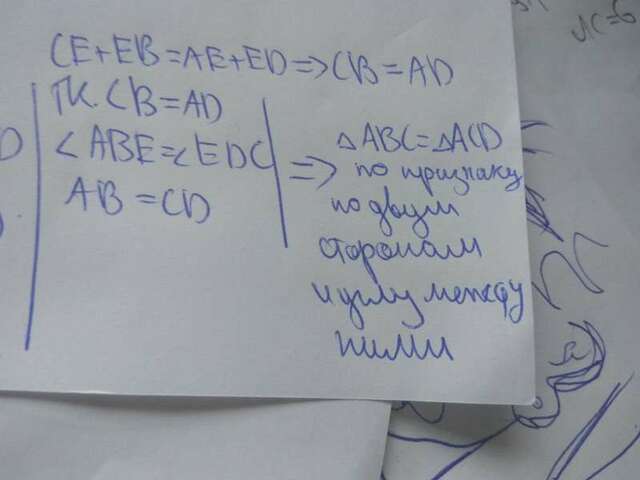 CE+EB=AE+ED=>CB=AD
ТК. CB=AD
∠ABE=∠EDC
AB=CD
=>
△ABC=△ACD
по признаку
по двум
сторонам
и углу между
ними